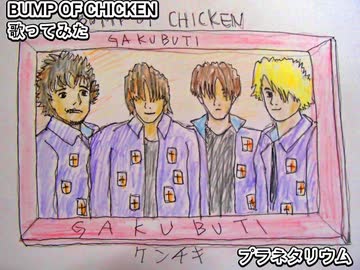 BUMP OF CHICKEN
歌ってみた
BUMP OF CHICKEN
GAKUBUTI
GAKUBUTI
ケンチキ
プラネタリウム